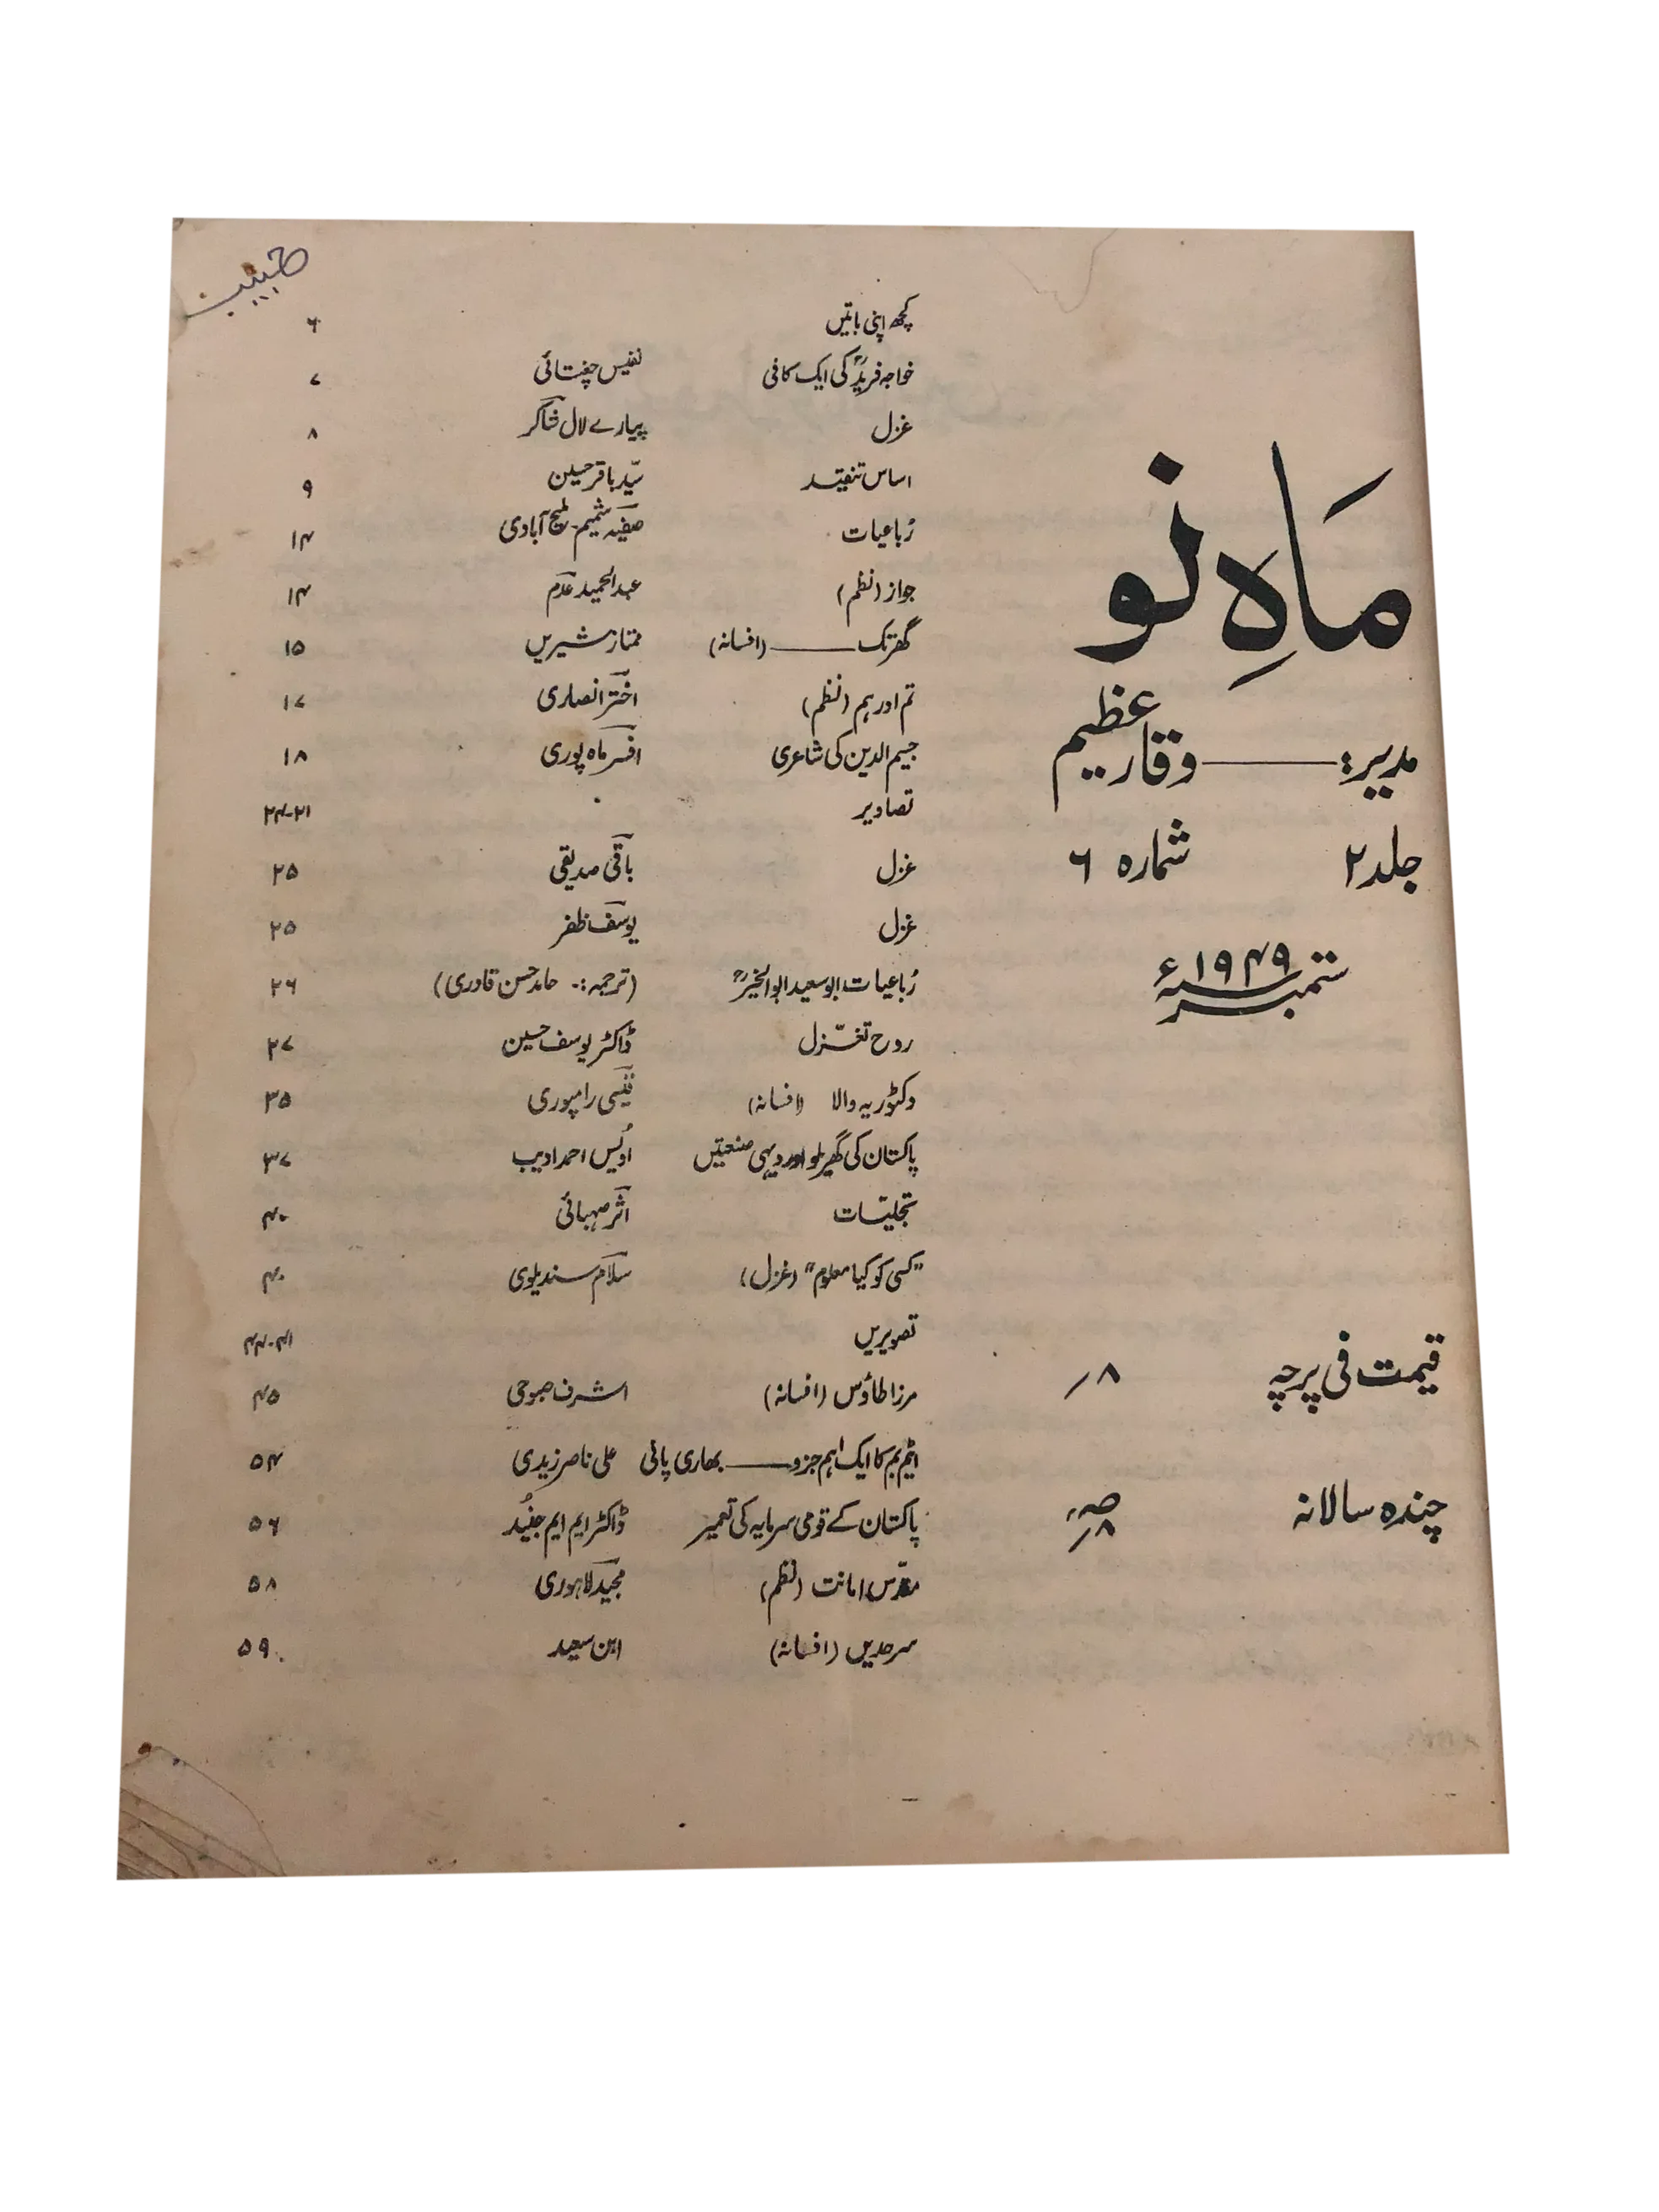 حبیب
ماہِ نو
مدیر: ——— وقار عظیم
جلد ۲ شمارہ ۶
ستمبر ۱۹۴۹ء
قیمت فی پرچہ ۸/
چندہ سالانہ
کچھ اپنی باتیں ۶
خواجہ فریدؒ کی ایک کافی نفیس چغتائی ۷
غزل پیارے لال شاکر ۸
اساس تنقید سیّد باقر حسین ۹
رُباعیات صفیہ شمیم ملیح آبادی ۱۴
جواز (نظم) عبدالحمید عدم ۱۴
گھر تک ——— (افسانہ) ممتاز شیریں ۱۵
تم اور ہم (نظم) اختر انصاری ۱۷
جسیم الدین کی شاعری افسر ماہ پوری ۱۸
تصاویر ۲۱-۲۴
غزل باقی صدیقی ۲۵
غزل یوسف ظفر ۲۵
رُباعیات ابو سعید ابو الخیرؒ (ترجمہ:- حامد حسن قادری) ۲۶
روح تغزّل ڈاکٹر یوسف حسین ۲۷
وکٹوریہ والا (افسانہ) قیسی رامپوری ۳۵
پاکستان کی گھریلو اور دیہی صنعتیں اُویس احمد ادیب ۳۷
تجلیّات اثر صہبائی ۴۰
"کسی کو کیا معلوم" (غزل) سلام سندیلوی ۴۰
تصویریں ۴۱-۴۴
مرزا طاؤس (افسانہ) اشرف صبوحی ۴۵
ایٹم بم کا ایک اہم جزو ——— بھاری پانی علی ناصر زیدی ۵۴
پاکستان کے قومی سرمایہ کی تعمیر ڈاکٹر ایم ایم جنید ۵۶
مقدّس امانت (نظم) مجید لاہوری ۵۸
سرحدیں (افسانہ) ابن سعید ۵۹